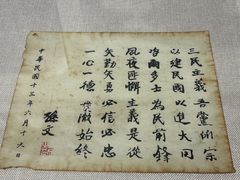 三民主義吾黨所宗
以建民國以進大同
咨爾多士為民前鋒
夙夜匪懈主義是從
矢勤矢勇必信必忠
一心一德貫徹始終
孫文
中華民國十三年六月十六日